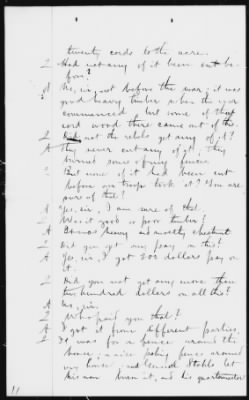 twenty cords to the acre.
Q Had not any of it been cut be
fore?
A No, sir, not before the war; it was
good heavy timber when the war
commenced but some of that
cord wood there came out of the
Q Did not the rebels get any of it?
A They never cut any of it; they
burned some of my fences.
Q But none of it had been cut
before our troops took it? You are
sure of that?
A Yes, sir, I am sure of that.
Q Was it good or poor timber?
A It was heavy and mostly chestnut
Q Did you get any pay on this?
A Yes, sir, I got 200 dollars pay on
it.
Q Did you not get any more than
two hundred dollars on all this?
A No, sir.
Q Who paid you that?
A I got it from different parties.
It was for a fence around the
house; a nice paling fence around
my house and General Stahls let
his men burn it, and his quartermaster
11